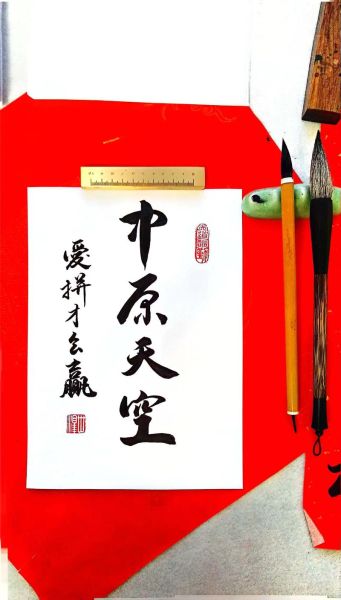 中原天空
爱拼才会赢